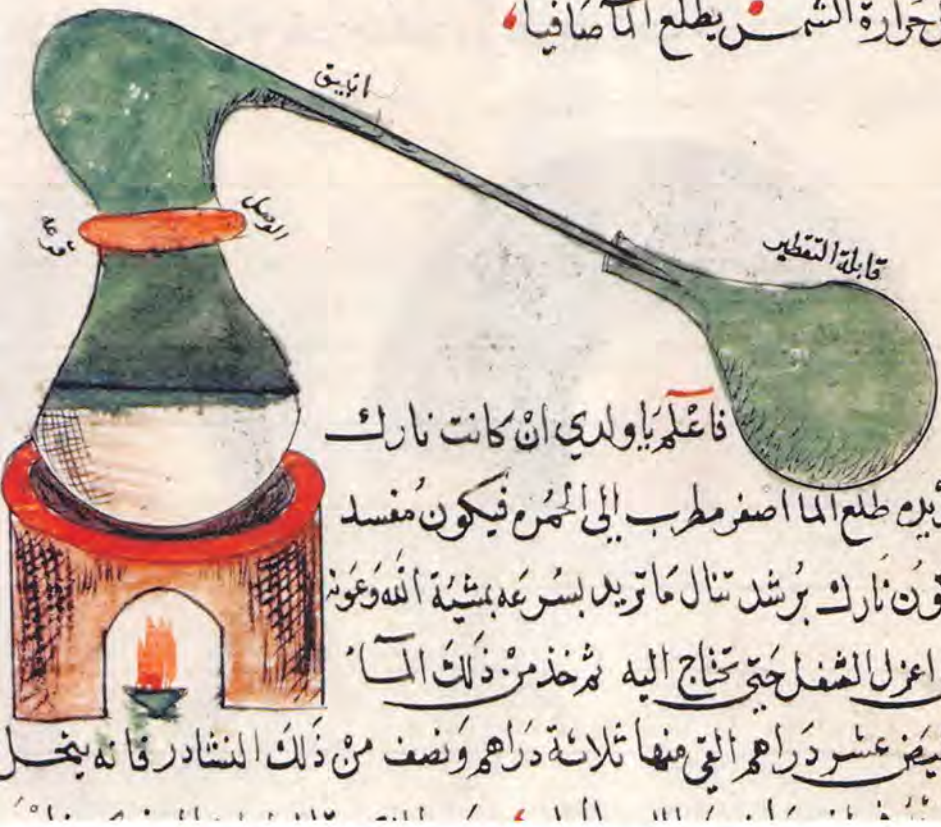 حرارة الشمس يطلع الما صافيا
انبيق
الوصل
قرعه
قابلة التقطير
فاعْلم يَا ولدي انْ كانت نارك
طلع الما اصفر مطرب الى الحُمره فيكون مُفسد
نارك برُشد تنال مَا تريد بسُرعَه بمشيّة الله وَعَونه
اعزل الثفل حَتى تحتاج اليه ثم خذ منْ ذَلكَ المآء
عشر دَراهم القي منها ثلاثة دَراهم وَنصف منْ ذَلكَ النشادر فانه ينحل